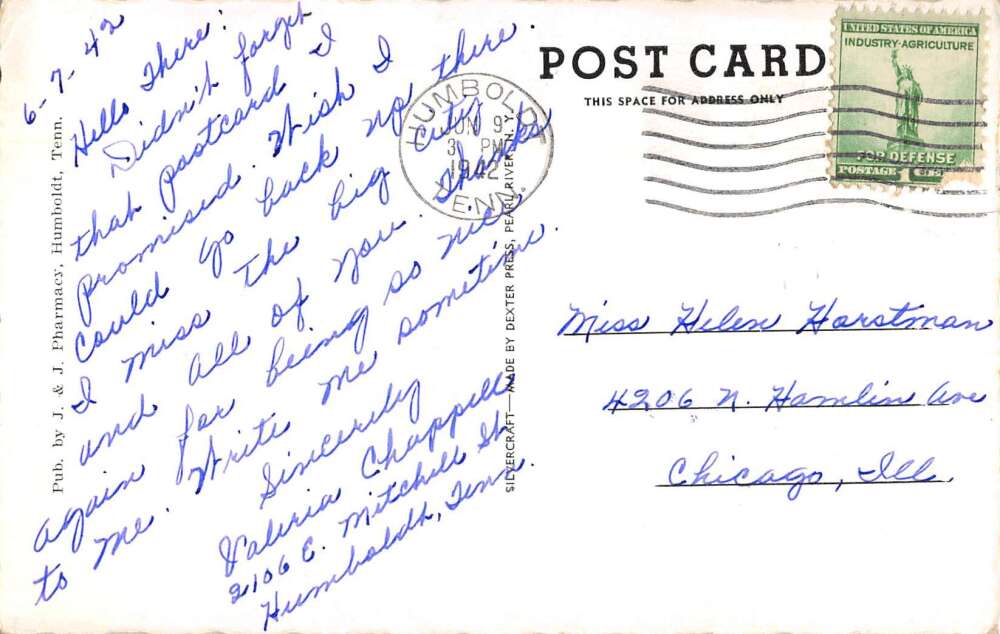 6-7-42
Hello There:
Didn't forget
that postcard I
promised. Wish I
could go back up there.
I miss the big city
and all of you. Thanks
again for being so nice
to me. Write me sometime.
Sincerely
Valeria Chappell
2106 E. Mitchell St.
Humboldt, Tenn.
Pub. by J. & J. Pharmacy, Humboldt, Tenn.
SILVERCRAFT—MADE BY DEXTER PRESS, PEARL RIVER, N. Y.
POST CARD
THIS SPACE FOR ADDRESS ONLY
HUMBOLDT
JUN 9
3 PM
1942
TENN.
UNITED STATES OF AMERICA
INDUSTRY-AGRICULTURE
FOR DEFENSE
POSTAGE 1
Miss Helen Horstman
4206 N. Hamlin Ave
Chicago, Ill.